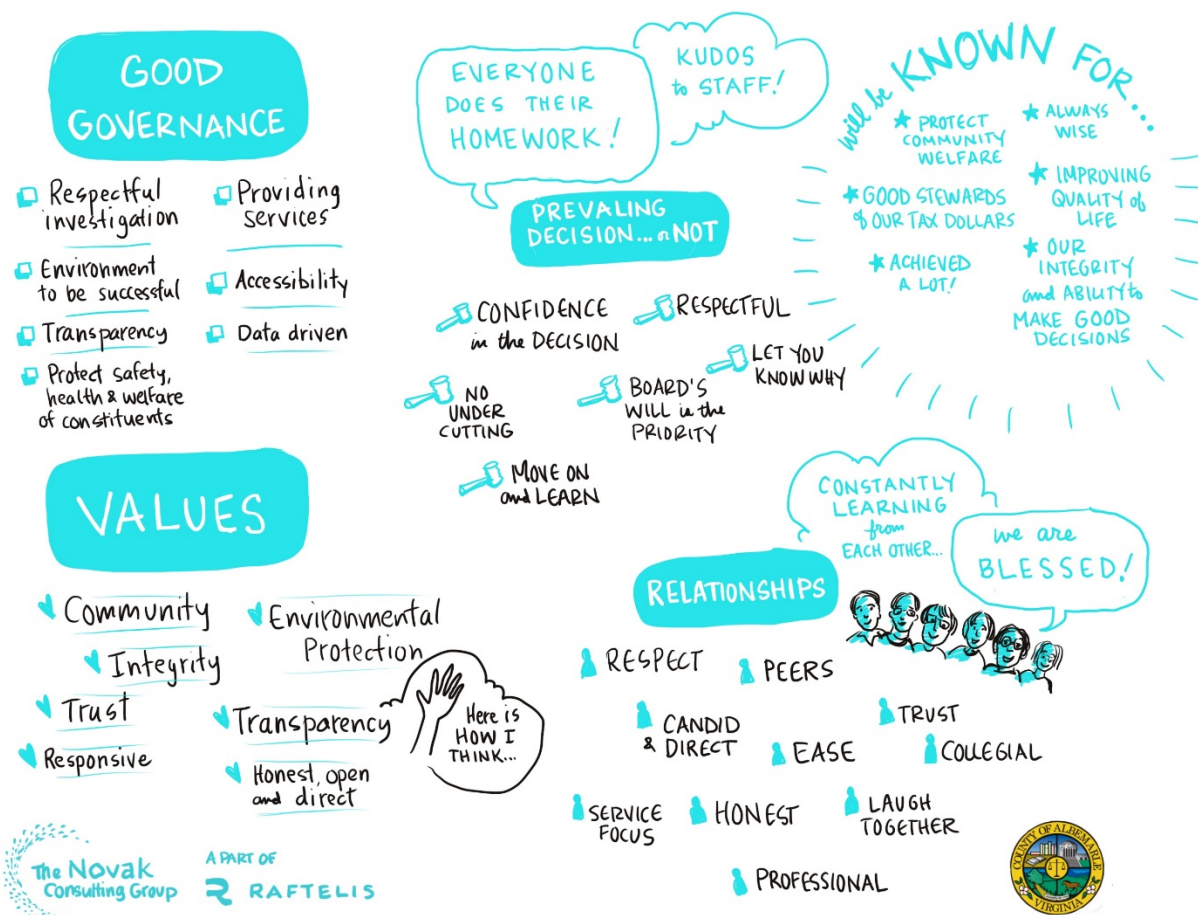 GOOD
GOVERNANCE
Respectful
investigation
Environment
to be successful
Transparency
Protect safety,
health & welfare
of constituents
Providing
services
Accessibility
Data driven
VALUES
Community
Integrity
Trust
Responsive
Environmental
Protection
Transparency
Honest, open
and direct
Here is
HOW I
THINK...
EVERYONE
DOES THEIR
HOMEWORK!
KUDOS
to STAFF!
PREVALING
DECISION... or NOT
CONFIDENCE
in the DECISION
RESPECTFUL
LET YOU
KNOW WHY
NO
UNDER
CUTTING
BOARD'S
WILL is the
PRIORITY
MOVE ON
and LEARN
will be KNOWN FOR...
PROTECT
COMMUNITY
WELFARE
GOOD STEWARDS
of OUR TAX DOLLARS
ACHIEVED
A LOT!
ALWAYS
WISE
IMPROVING
QUALITY of
LIFE
OUR
INTEGRITY
and ABILITY to
MAKE GOOD
DECISIONS
CONSTANTLY
LEARNING
from
EACH OTHER...
we are
BLESSED!
RELATIONSHIPS
RESPECT
PEERS
CANDID
& DIRECT
TRUST
EASE
COLLEGIAL
SERVICE
FOCUS
HONEST
LAUGH
TOGETHER
PROFESSIONAL
The Novak
Consulting Group
A PART OF
RAFTELIS
COUNTY OF ALBEMARLE
VIRGINIA